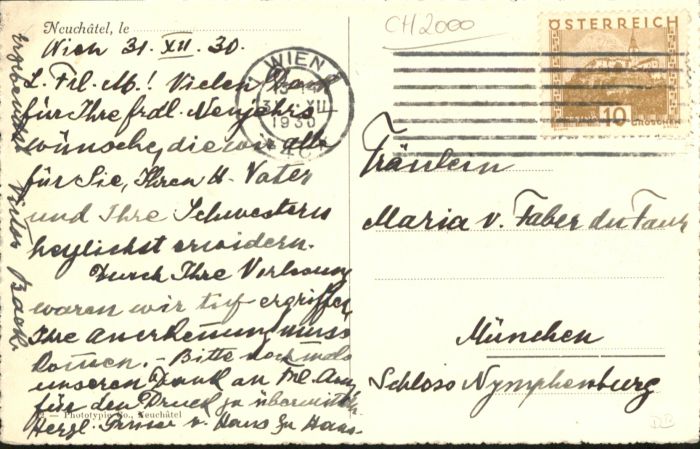 Neuchâtel, le
Wien 31. XII. 30.
L. Frl. M.! Vielen Dank
für Ihre frdl. Neujahrs
wünsche, die wir alle
für Sie, Ihren H. Vater
und Ihre Schwestern
herzlichst erwidern.
Durch Ihre Vorlesung
waren wir tief ergriffen,
Ihre Anerkennung muss
kommen. – Bitte nochmals
unseren Dank an Frl. Amy
für den Druck zu übermitteln
Herzl. Grüsse v. Haus zu Haus.
Ergebenst Victor
— Phototypie Co., Neuchâtel
CH 2000
WIEN
31. XII
1930
ÖSTERREICH
10 GROSCHEN
Fräulein
Maria v. Faber du Faur
München
Schloss Nymphenburg
DB